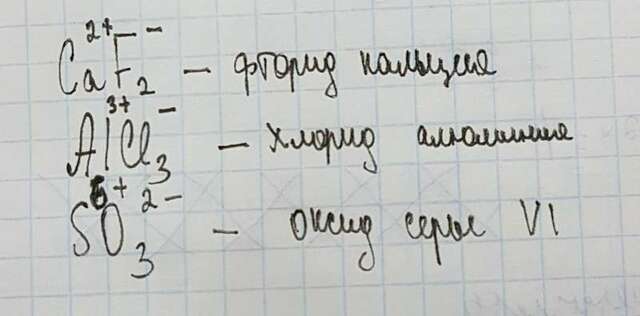 Ca²⁺F₂⁻ – фторид кальция
Al³⁺Cl₃⁻ – хлорид алюминия
S⁶⁺O₃²⁻ – оксид серы VI